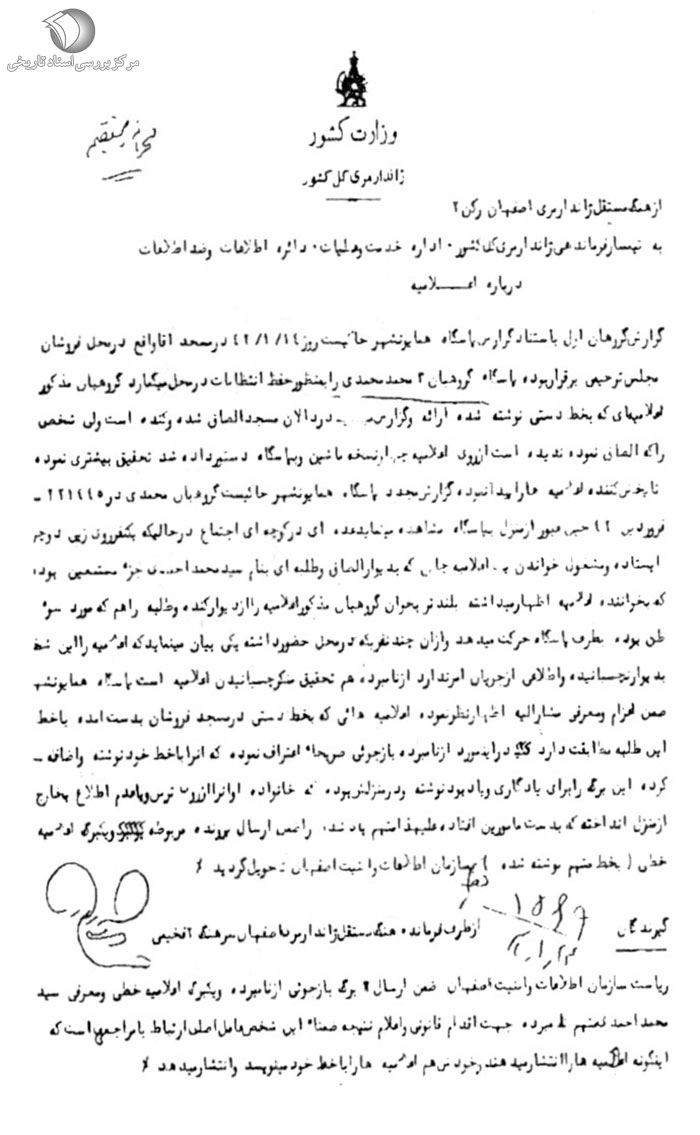 مرکز بررسی اسناد تاریخی
محرمانه مستقیم
وزارت کشور
ژاندارمری کل کشور
از هنگ مستقل ژاندارمری اصفهان رکن ۲
به تیمسار فرماندهی ژاندارمری کل کشور ۰ اداره خدمت وعملیات ۰ دائره اطلاعات وضد اطلاعات
درباره اعلامیه
گزارش گروهان اول باستناد گزارش پاسگاه همایونشهر حاکیست روز ۴۲/۱/۱۴ در مسجد اقا واقع در محل فروشان
مجلس ترحیمی برقرار بوده پاسگاه گروهبان ۲ محمد محمدی را بمنظور حفظ انتظامات در محل میگمارد گروهبان مذکور
اعلامیهای که بخط دستی نوشته شده ارائه وگزارش در دالان مسجد الصاق شده وکنده است ولی شخص
را که الصاق نموده ندیده است از روی اعلامیه چهار نسخه ماشین وبپاسگاه دستور داده شد تحقیق بیشتری نموده
تا پخش کننده اعلامیه ها را پیدا نموده گزارش مجدد پاسگاه همایونشهر حاکیست گروهبان محمدی در ۲۲۱۴۴۵ ـ
فروردین ۴۲ حین عبور از منزل بپاسگاه مشاهده مینماید عده ای در کوچه ای اجتماع در حالیکه یکنفر روی زین دوچرخه
ایستاده ومشغول خواندن اعلامیه چاپی که بدیوار الصاق وطلبه ای بنام سید محمد احمدی جزء مستمعین بوده
که بخواننده اعلامیه اظهار میداشته بلندتر بخوان گروهبان مذکور اعلامیه را از دیوار کنده وطلبه را هم که مورد سوء
ظن بوده بطرف پاسگاه حرکت میدهد واز آن چند نفریکه در محل حضور داشته یکی بیان مینماید که اعلامیه را این شخص
بدیوار نچسبانیده واطلاعی از جریان امر ندارد از نامبرده هم تحقیق منکر چسبانیدن اعلامیه است پاسگاه همایونشهر
ضمن اعزام ومعرفی مشارالیه اظهار نظر نموده اعلامیه هائی که بخط دستی در مسجد فروشان بدست امده با خط
این طلبه مطابقت دارد در اینمورد از نامبرده بازجوئی صریحا اعتراف نموده که انرا با خط خود نوشته واضافه ـ
کرده این برگ را برای یادگاری ویادبود نوشته ودر منزلش بوده که خانواده او انرا از روی ترس وبا عدم اطلاع بخارج
از منزل انداخته که بدست مامورین افتاده علیهذا متهم یاد شده را ضمن ارسال پرونده مربوطه ویکبرگ اعلامیه
خطی ( بخط متهم نوشته شده ) بسازمان اطلاعات وامنیت اصفهان تحویل گردید ٪
گیرندگان
از طرف فرمانده هنگ مستقل ژاندارمری اصفهان سرهنگ ۲ فخیمی
ریاست سازمان اطلاعات وامنیت اصفهان ضمن ارسال ۲ برگ بازجوئی از نامبرده ویکبرگ اعلامیه خطی ومعرفی سید
محمد احمد متهم نامبرده جهت اقدام قانونی واعلام نتیجه ضمنا این شخص عامل اصلی ارتباط با مراجعی است که
اینگونه اعلامیه ها را انتشار میدهند وخودش هم اعلامیه ها را با خط خود مینویسد وانتشار میدهد ٪